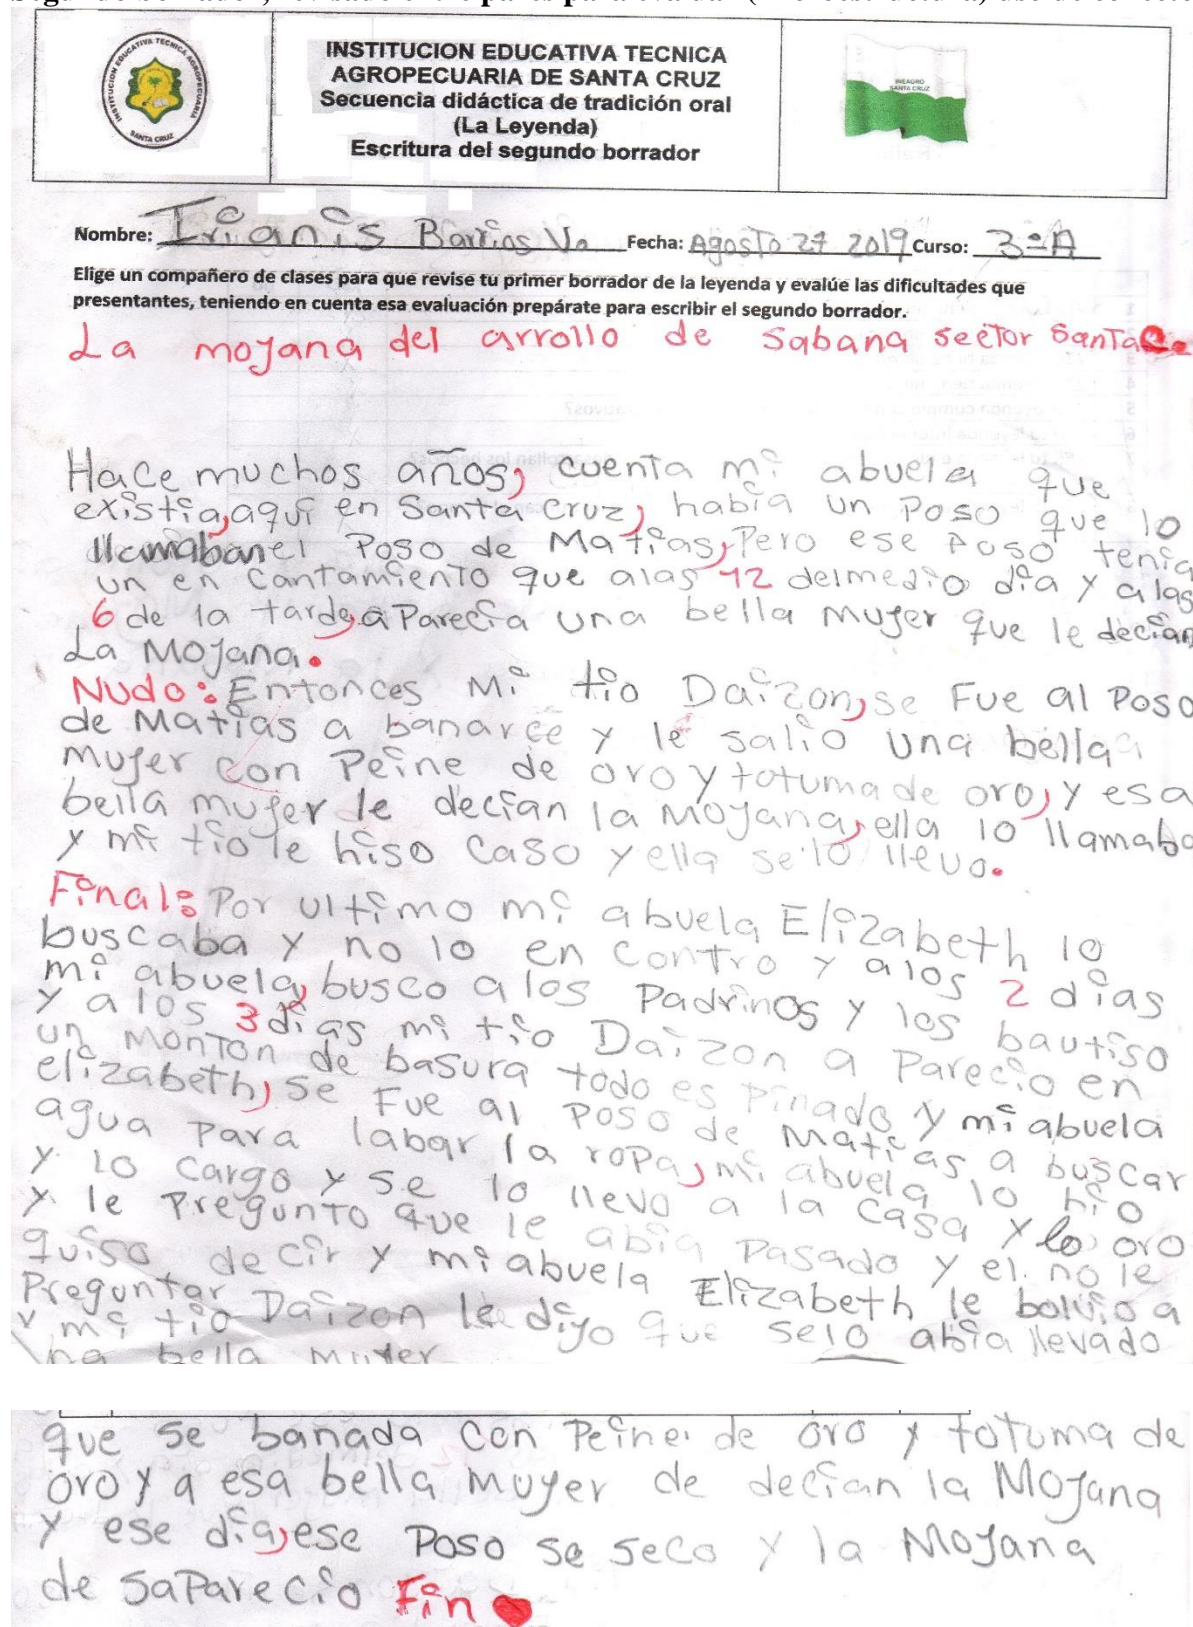 INSTITUCION EDUCATIVA TECNICA
AGROPECUARIA DE SANTA CRUZ
Secuencia didáctica de tradición oral
(La Leyenda)
Escritura del segundo borrador
INSTITUCION EDUCATIVA TECNICA AGROPECUARIA
SANTA CRUZ
INEAGRO
SANTA CRUZ
Nombre: Irianis Barrios Va Fecha: Agosto 27 2019 Curso: 3=A
Elige un compañero de clases para que revise tu primer borrador de la leyenda y evalúe las dificultades que
presentantes, teniendo en cuenta esa evaluación prepárate para escribir el segundo borrador.
La mojana del arrollo de Sabana sector Santa C.
Hace muchos años, cuenta mi abuela que
existia, aquí en Santa Cruz, había un Poso que lo
llamaban el Poso de Matías, Pero ese Poso tenia
un en cantamiento que alas 12 delmedio día y a las
6 de la tarde, a Parecía una bella Mujer que le decían
La Mojana.
Nudo: Entonces Mi tío Daizon, se Fue al Poso
de Matías a banarce y le salio una bella
Mujer con Peine de oro y totuma de oro, y esa
bella mujer le decían la Mojana, ella lo llamaba
y mi tío le hiso caso y ella se lo llevo.
Final: Por ultimo mi abuela Elizabeth lo
buscaba y no lo en contro y alos 2 días
mi abuela, busco a los Padrinos y los bautiso
y a los 3 días mi tío Daizon a Parecio en
un Monton de basura todo es Pinado y mi abuela
elizabeth, se Fue al Poso de Matías a buscar
agua Para labar la ropa, mi abuela lo hio
y lo cargo y se lo llevo a la casa y lo oro
y le Pregunto que le abia Pasado y el no le
quiso de cir y mi abuela Elizabeth le bolvio a
Preguntar
y mi tío Daizon le dijo que selo abia llevado
na bella mujer
que se banada con Peine de oro y totuma de
oro y a esa bella Mujer de decían la Mojana
y ese día, ese Poso se seco y la Mojana
de saParecio Fin